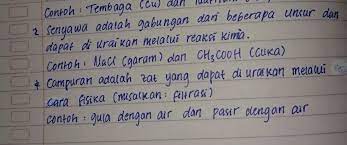 Contoh : Tembaga (Cu) dan
2 Senyawa adalah gabungan dari beberapa unsur dan
dapat di uraikan melalui reaksi kimia.
Contoh : NaCl (garam) dan CH3COOH (Cuka)
4 Campuran adalah zat yang dapat di uraikan melalui
cara fisika (misalkan : filtrasi)
Contoh : gula dengan air dan pasir dengan air